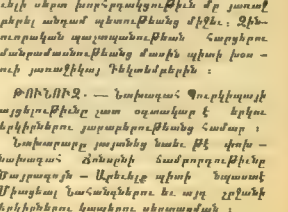 ւելի սերտ խորհրդակցութիւն մըը յառաջ
բերել անդամ պետութեանց միջեւ ։ Զին-
ուորական պաշտպանութեան հարցերու
մանրամասնութեանց մասին պիտի խօս -
ուի յառաջիկայ Դեկտեմբերին ։
ԹՈՒՆՈՒԶ. — Նախագահ Պուրկիպայի
այցելութիւնը շատ օգտակար է երկու
երկիրներու յարաբերութեանց համար ։
Նախարարը յայտնեց նաեւ թէ փոխ -
նախագահ Ճոնսընի ճամբորդութիւնը
Մայրագոյն - Արեւելք պիտի նպաստէ
Միացեալ Նահանգներու եւ այդ շրջանի
երկիրներու կապերու սերտացման ։